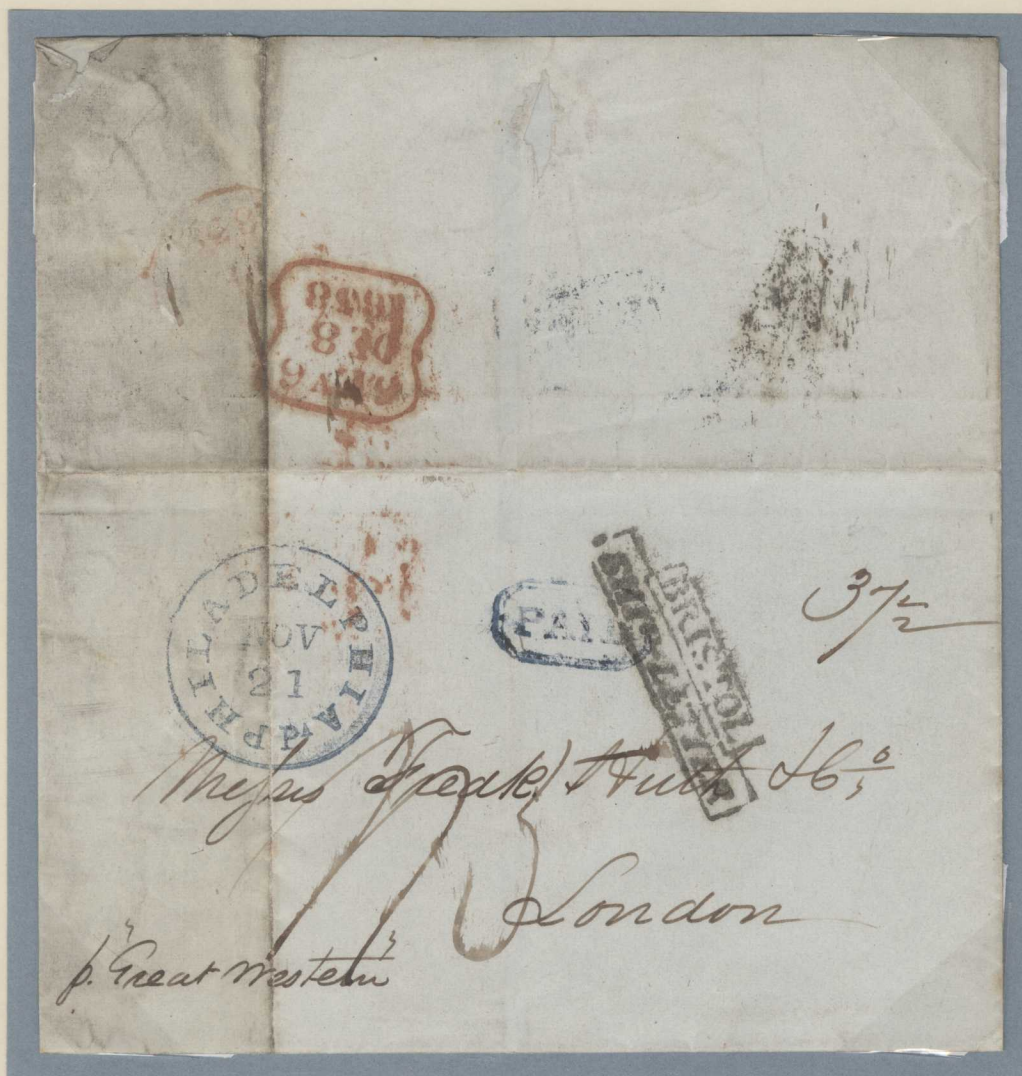 1838
8
PHILADELPHIA
NOV
21
Pa
PAID
BRISTOL
SHIP LETTER
37½
Messrs Fredk Huth & Co,
London
p. "Great Western"